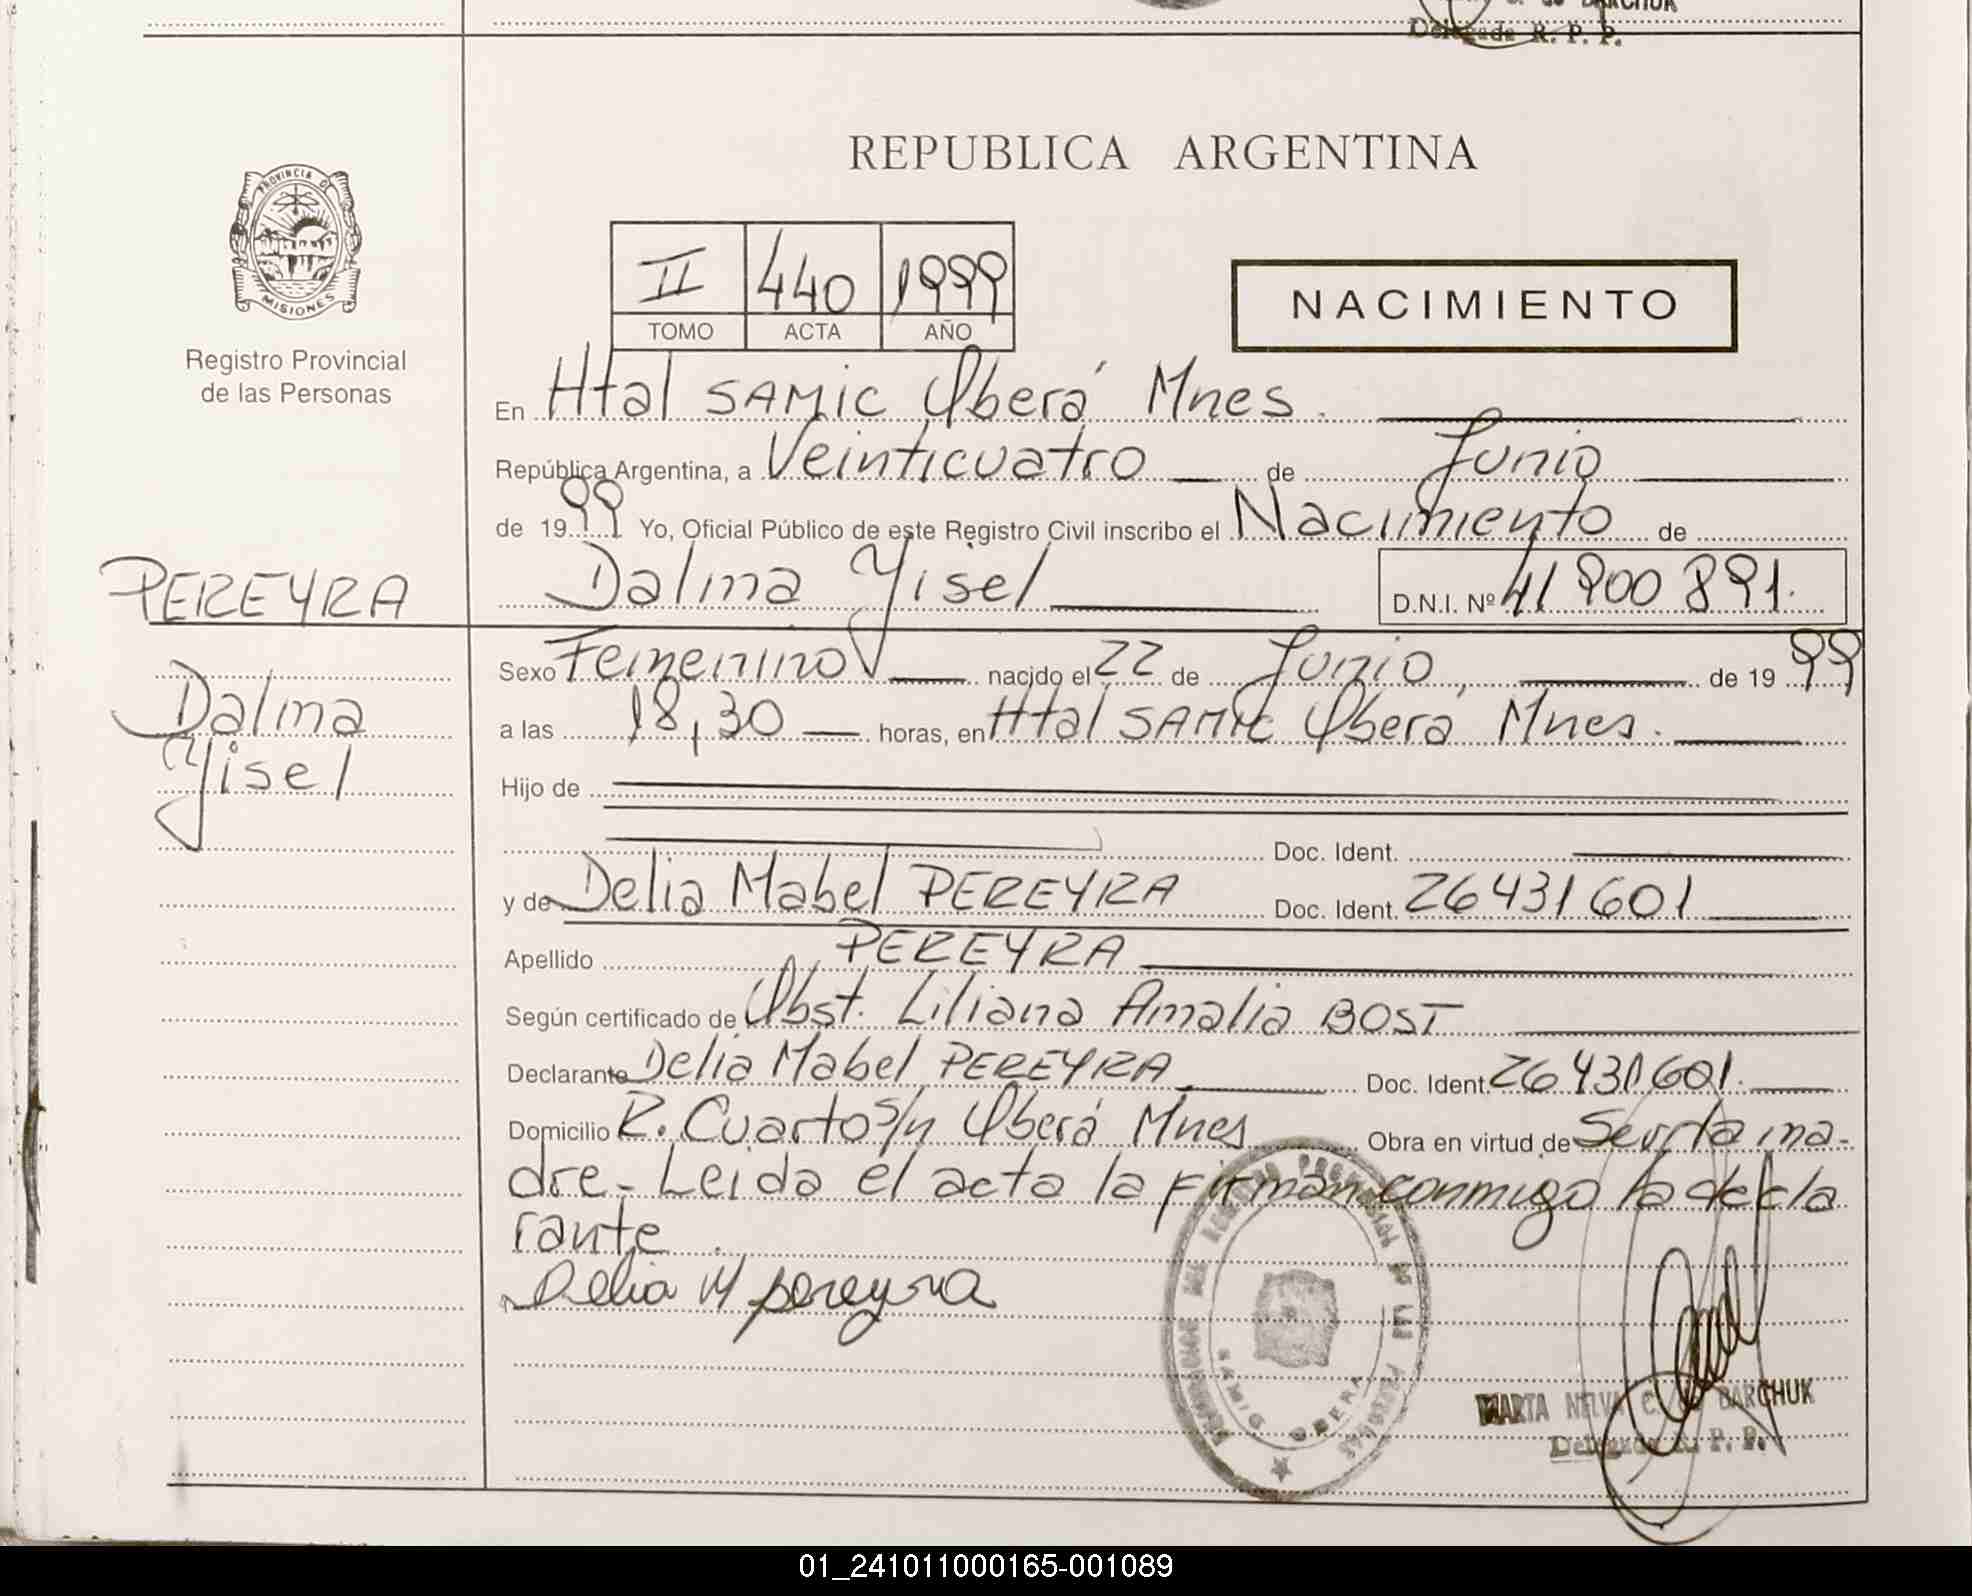 DARCHUK
Delegada R. P. P.
REPUBLICA ARGENTINA
PROVINCIA DE
MISIONES
Registro Provincial
de las Personas
II 440 1999
TOMO ACTA AÑO
NACIMIENTO
En Htal SAMIC Oberá Mnes.
República Argentina, a Veinticuatro de Junio
de 1999 Yo, Oficial Público de este Registro Civil inscribo el Nacimiento de
PEREYRA
Dalma Yisel D.N.I. Nº 41 900 891.
Dalma
Yisel
Sexo Femenino nacido el 22 de Junio de 1999
a las 18,30 horas, en Htal SAMIC Oberá Mnes.
Hijo de
Doc. Ident.
y de Delia Mabel PEREYRA Doc. Ident. 26431601
Apellido PEREYRA
Según certificado de Obst. Liliana Amalia BOST
Declarante Delia Mabel PEREYRA Doc. Ident. 26431601.
Domicilio R. Cuarto s/n Oberá Mnes Obra en virtud de Ser la ma-
dre.- Leida el acta la firman conmigo la decla
rante
Delia M pereyra
SAMIC OBERA
MARTA NELVA C. de DARCHUK
Delegada R. P. P.
01_241011000165-001089